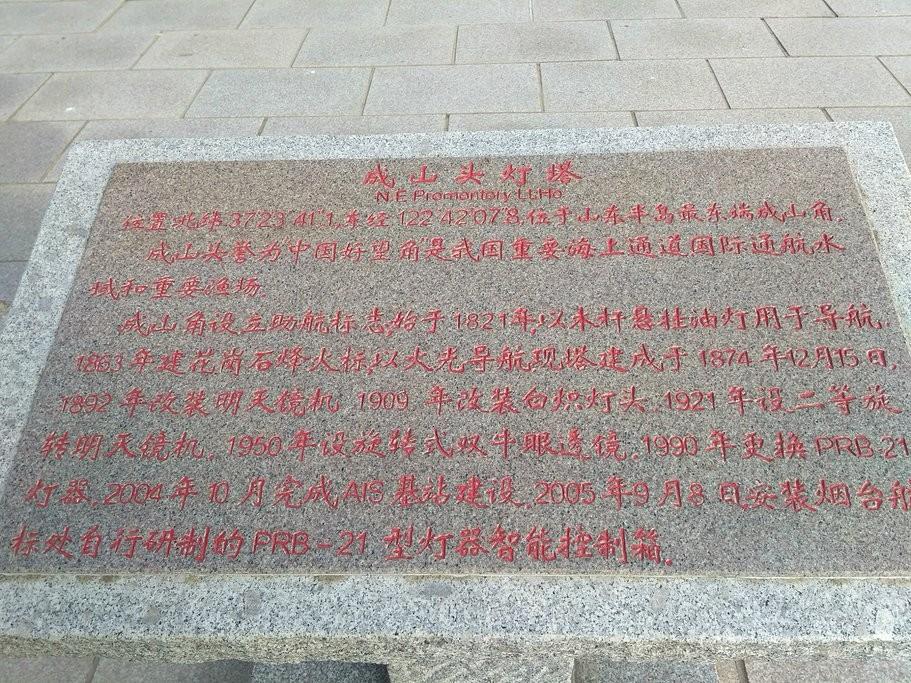 成山头灯塔
N.E Promontory Lt.Ho
位置:北纬37°23′41″1,东经122°42′07″8,位于山东半岛最东端成山角.
成山头誉为中国好望角,是我国重要海上通道国际通航水
域和重要渔场.
成山角设立助航标志,始于1821年,以木杆悬挂油灯用于导航,
1863年建花岗石烽火标,以火光导航现塔建成于1874年12月15日,
1892年改装明天镜机 1909 年改装白炽灯头,1921年设二等旋
转明天镜机, 1950年设旋转式双牛眼透镜,1990年更换PRB-21
灯器,2004年10月完成AIS基站建设,2005年9月8日,安装烟台航
标处自行研制的PRB-21 型灯器智能控制箱.